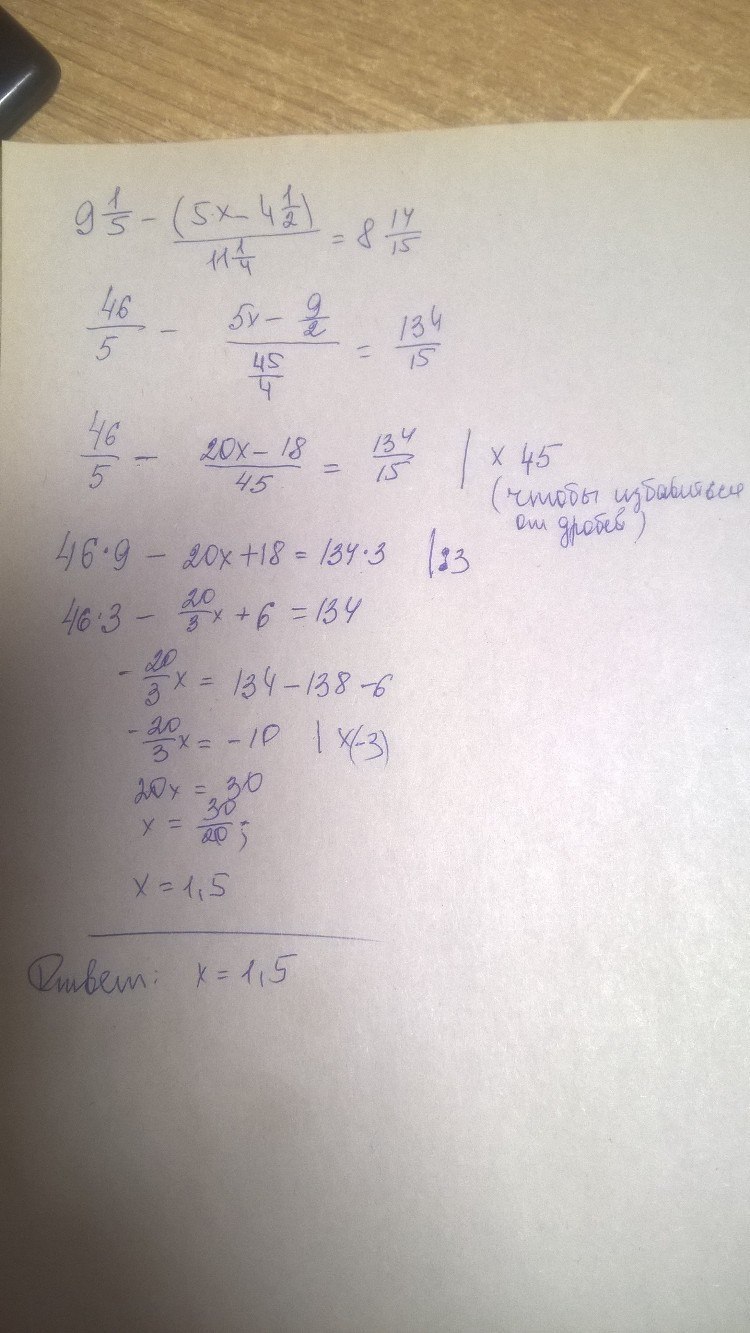 9 1/5 - (5x - 4 1/2) / 11 1/4 = 8 14/15
46/5 - (5x - 9/2) / (45/4) = 134/15
46/5 - (20x - 18)/45 = 134/15 | x 45
(чтобы избавиться
от дробей)
46·9 - 20x + 18 = 134·3 |:3
46·3 - 20/3 x + 6 = 134
- 20/3 x = 134 - 138 - 6
- 20/3 x = -10 | x(-3)
20x = 30
x = 30/20;
x = 1,5
Ответ: x = 1,5